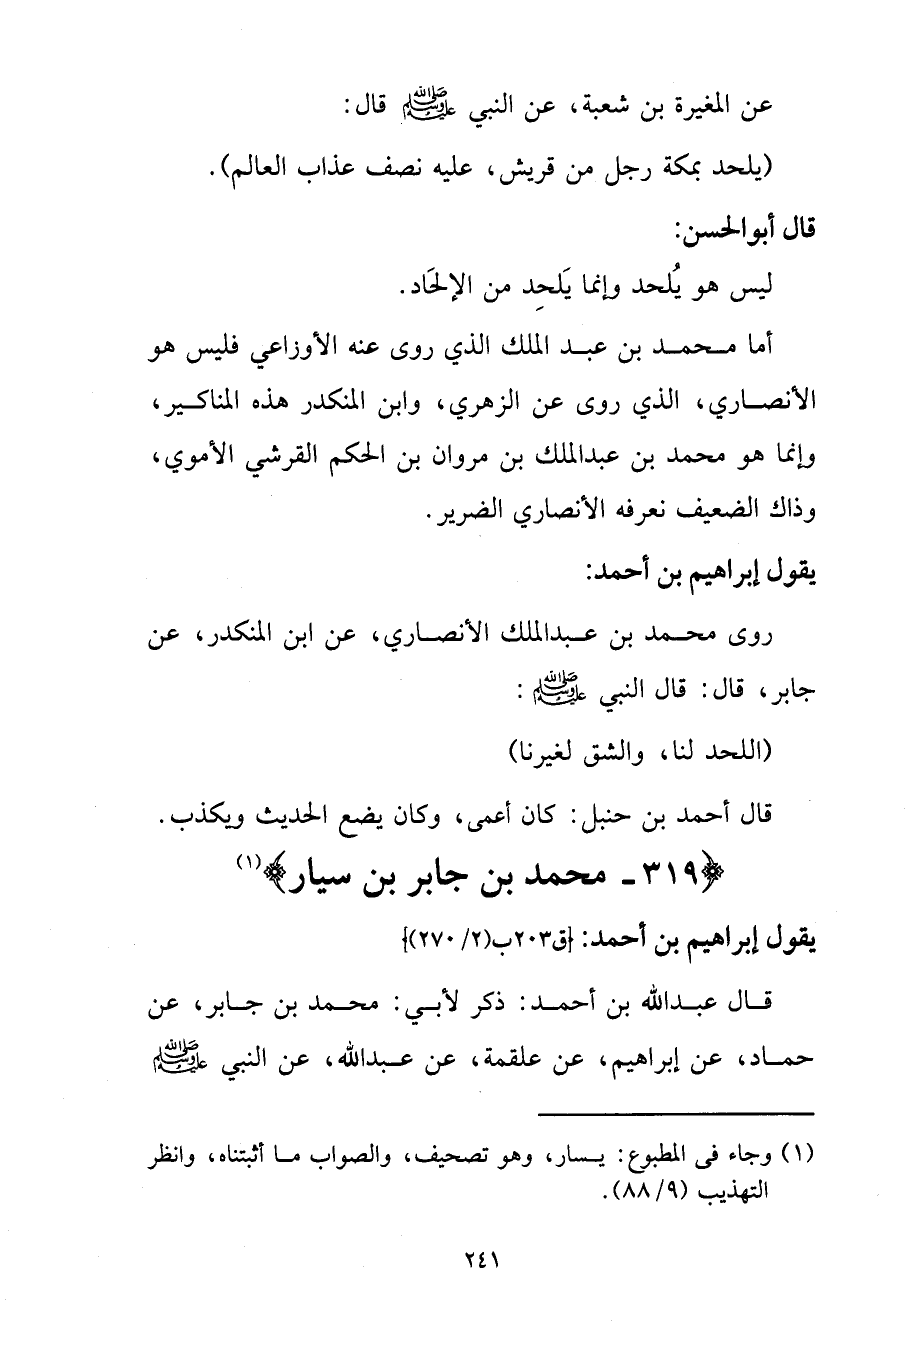 عن المغيرة بن شعبة، عن النبي ﷺ قال:
(يلحد بمكة رجل من قريش، عليه نصف عذاب العالم).
قال أبوالحسن:
ليس هو يُلحد وإنما يَلحِد من الإلحَاد.
أما محمد بن عبد الملك الذي روى عنه الأوزاعي فليس هو
الأنصاري، الذي روى عن الزهري، وابن المنكدر هذه المناكير،
وإنما هو محمد بن عبدالملك بن مروان بن الحكم القرشي الأموي،
وذاك الضعيف نعرفه الأنصاري الضرير.
يقول إبراهيم بن أحمد:
روى محمد بن عبدالملك الأنصاري، عن ابن المنكدر، عن
جابر، قال: قال النبي ﷺ :
(اللحد لنا، والشق لغيرنا)
قال أحمد بن حنبل: كان أعمى، وكان يضع الحديث ويكذب.
﴿٣١٩ - محمد بن جابر بن سيار﴾(١)
يقول إبراهيم بن أحمد: {ق٢٠٣ب(٢/ ٢٧٠)}
قال عبدالله بن أحمد: ذكر لأبي: محمد بن جابر، عن
حماد، عن إبراهيم، عن علقمة، عن عبدالله، عن النبي ﷺ
(١) وجاء فى المطبوع: يسار، وهو تصحيف، والصواب ما أثبتناه، وانظر
التهذيب (٩/ ٨٨).
٢٤١